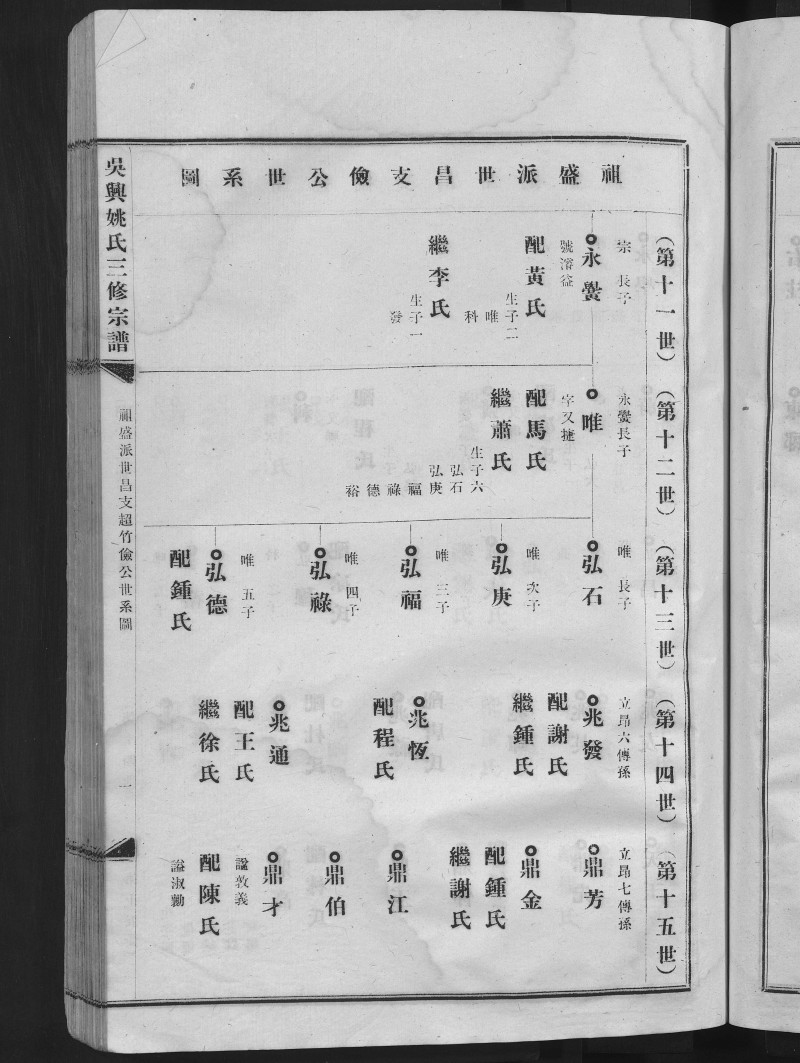 祖盛派世昌支儉公世系圖
(第十一世)
宗 長子
永黌
號濬益
配黃氏
生子二
唯
科
繼李氏
生子一
發
(第十二世)
永黌長子
唯
字又捷
配馬氏
繼蕭氏
生子六
弘石
弘庚
福
祿
德
裕
(第十三世)
唯 長子
弘石
唯 次子
弘庚
唯 三子
弘福
唯 四子
弘祿
唯 五子
弘德
配鍾氏
(第十四世)
立昂六傳孫
兆發
配謝氏
繼鍾氏
兆恆
配程氏
兆通
配王氏
繼徐氏
(第十五世)
立昂七傳孫
鼎芳
鼎金
配鍾氏
繼謝氏
鼎江
鼎伯
鼎才
諡敦義
配陳氏
諡淑勤
吳興姚氏三修宗譜
祖盛派世昌支超竹儉公世系圖
一